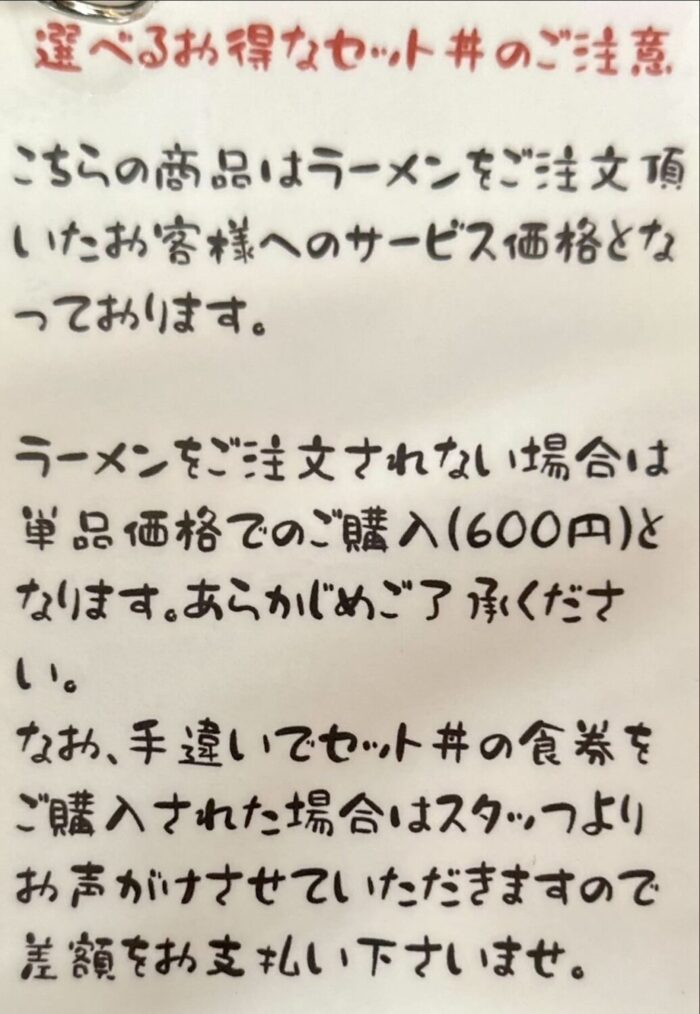 選べるお得なセット丼のご注意
こちらの商品はラーメンをご注文頂
いたお客様へのサービス価格とな
っております。
ラーメンをご注文されない場合は
単品価格でのご購入(600円)と
なります。あらかじめご了承くださ
い。
なお、手違いでセット丼の食券を
ご購入された場合はスタッつより
お声がけさせていただきますので
差額をお支払い下さいませ。